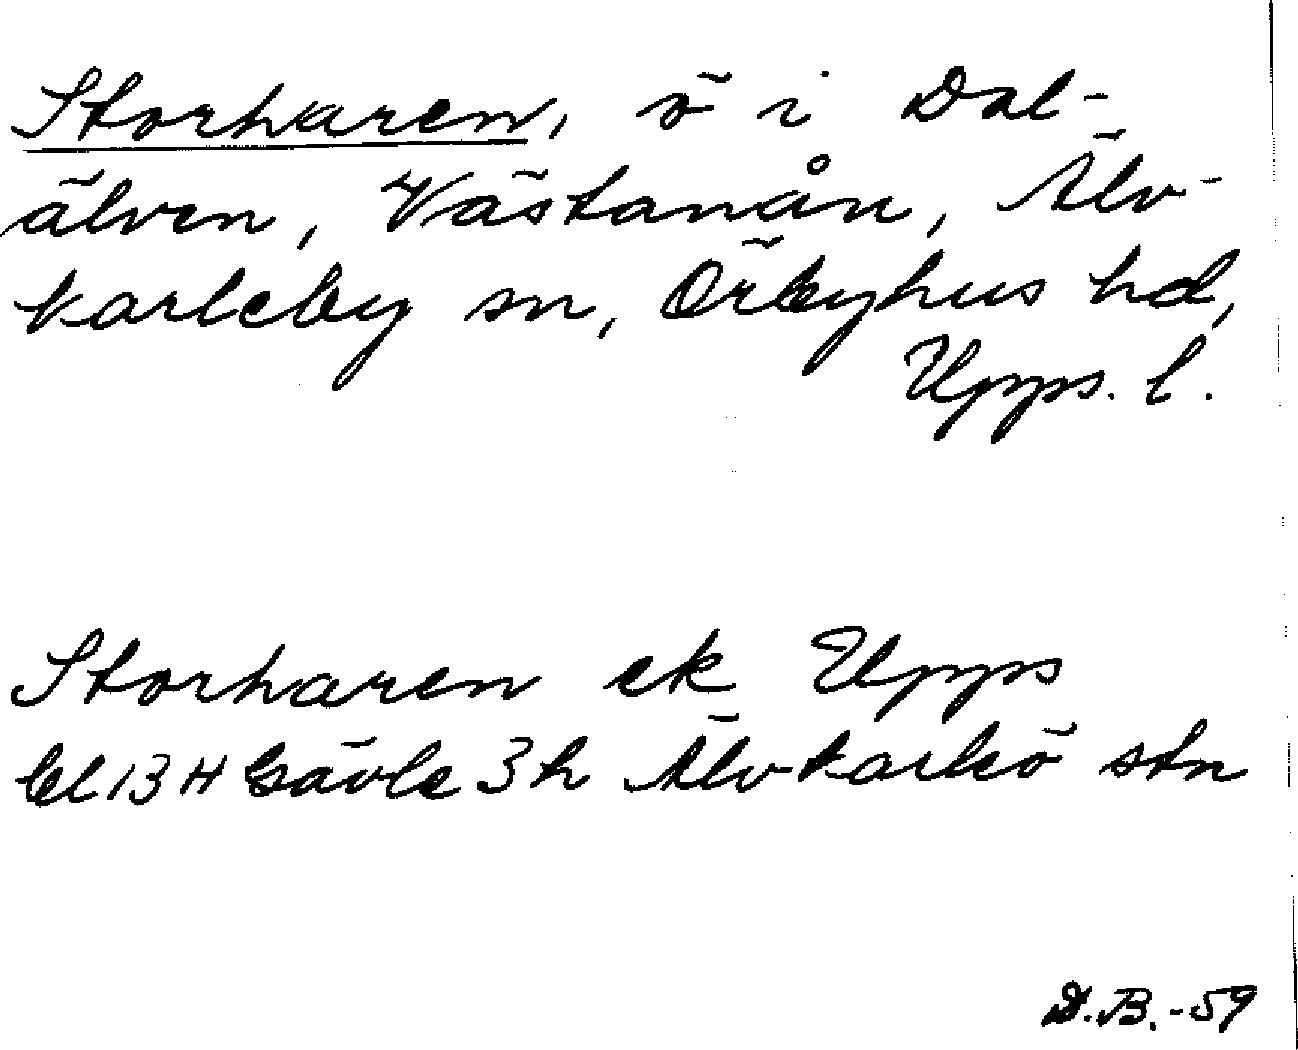 Storharen, ö i Dal-
älven, Västanån, Älv-
karleby sn, Örbyhus hd,
Upps. l.
Storharen ek Upps
bl 13 H Gävle 3 h Älvkarleö stn
D.B.-59